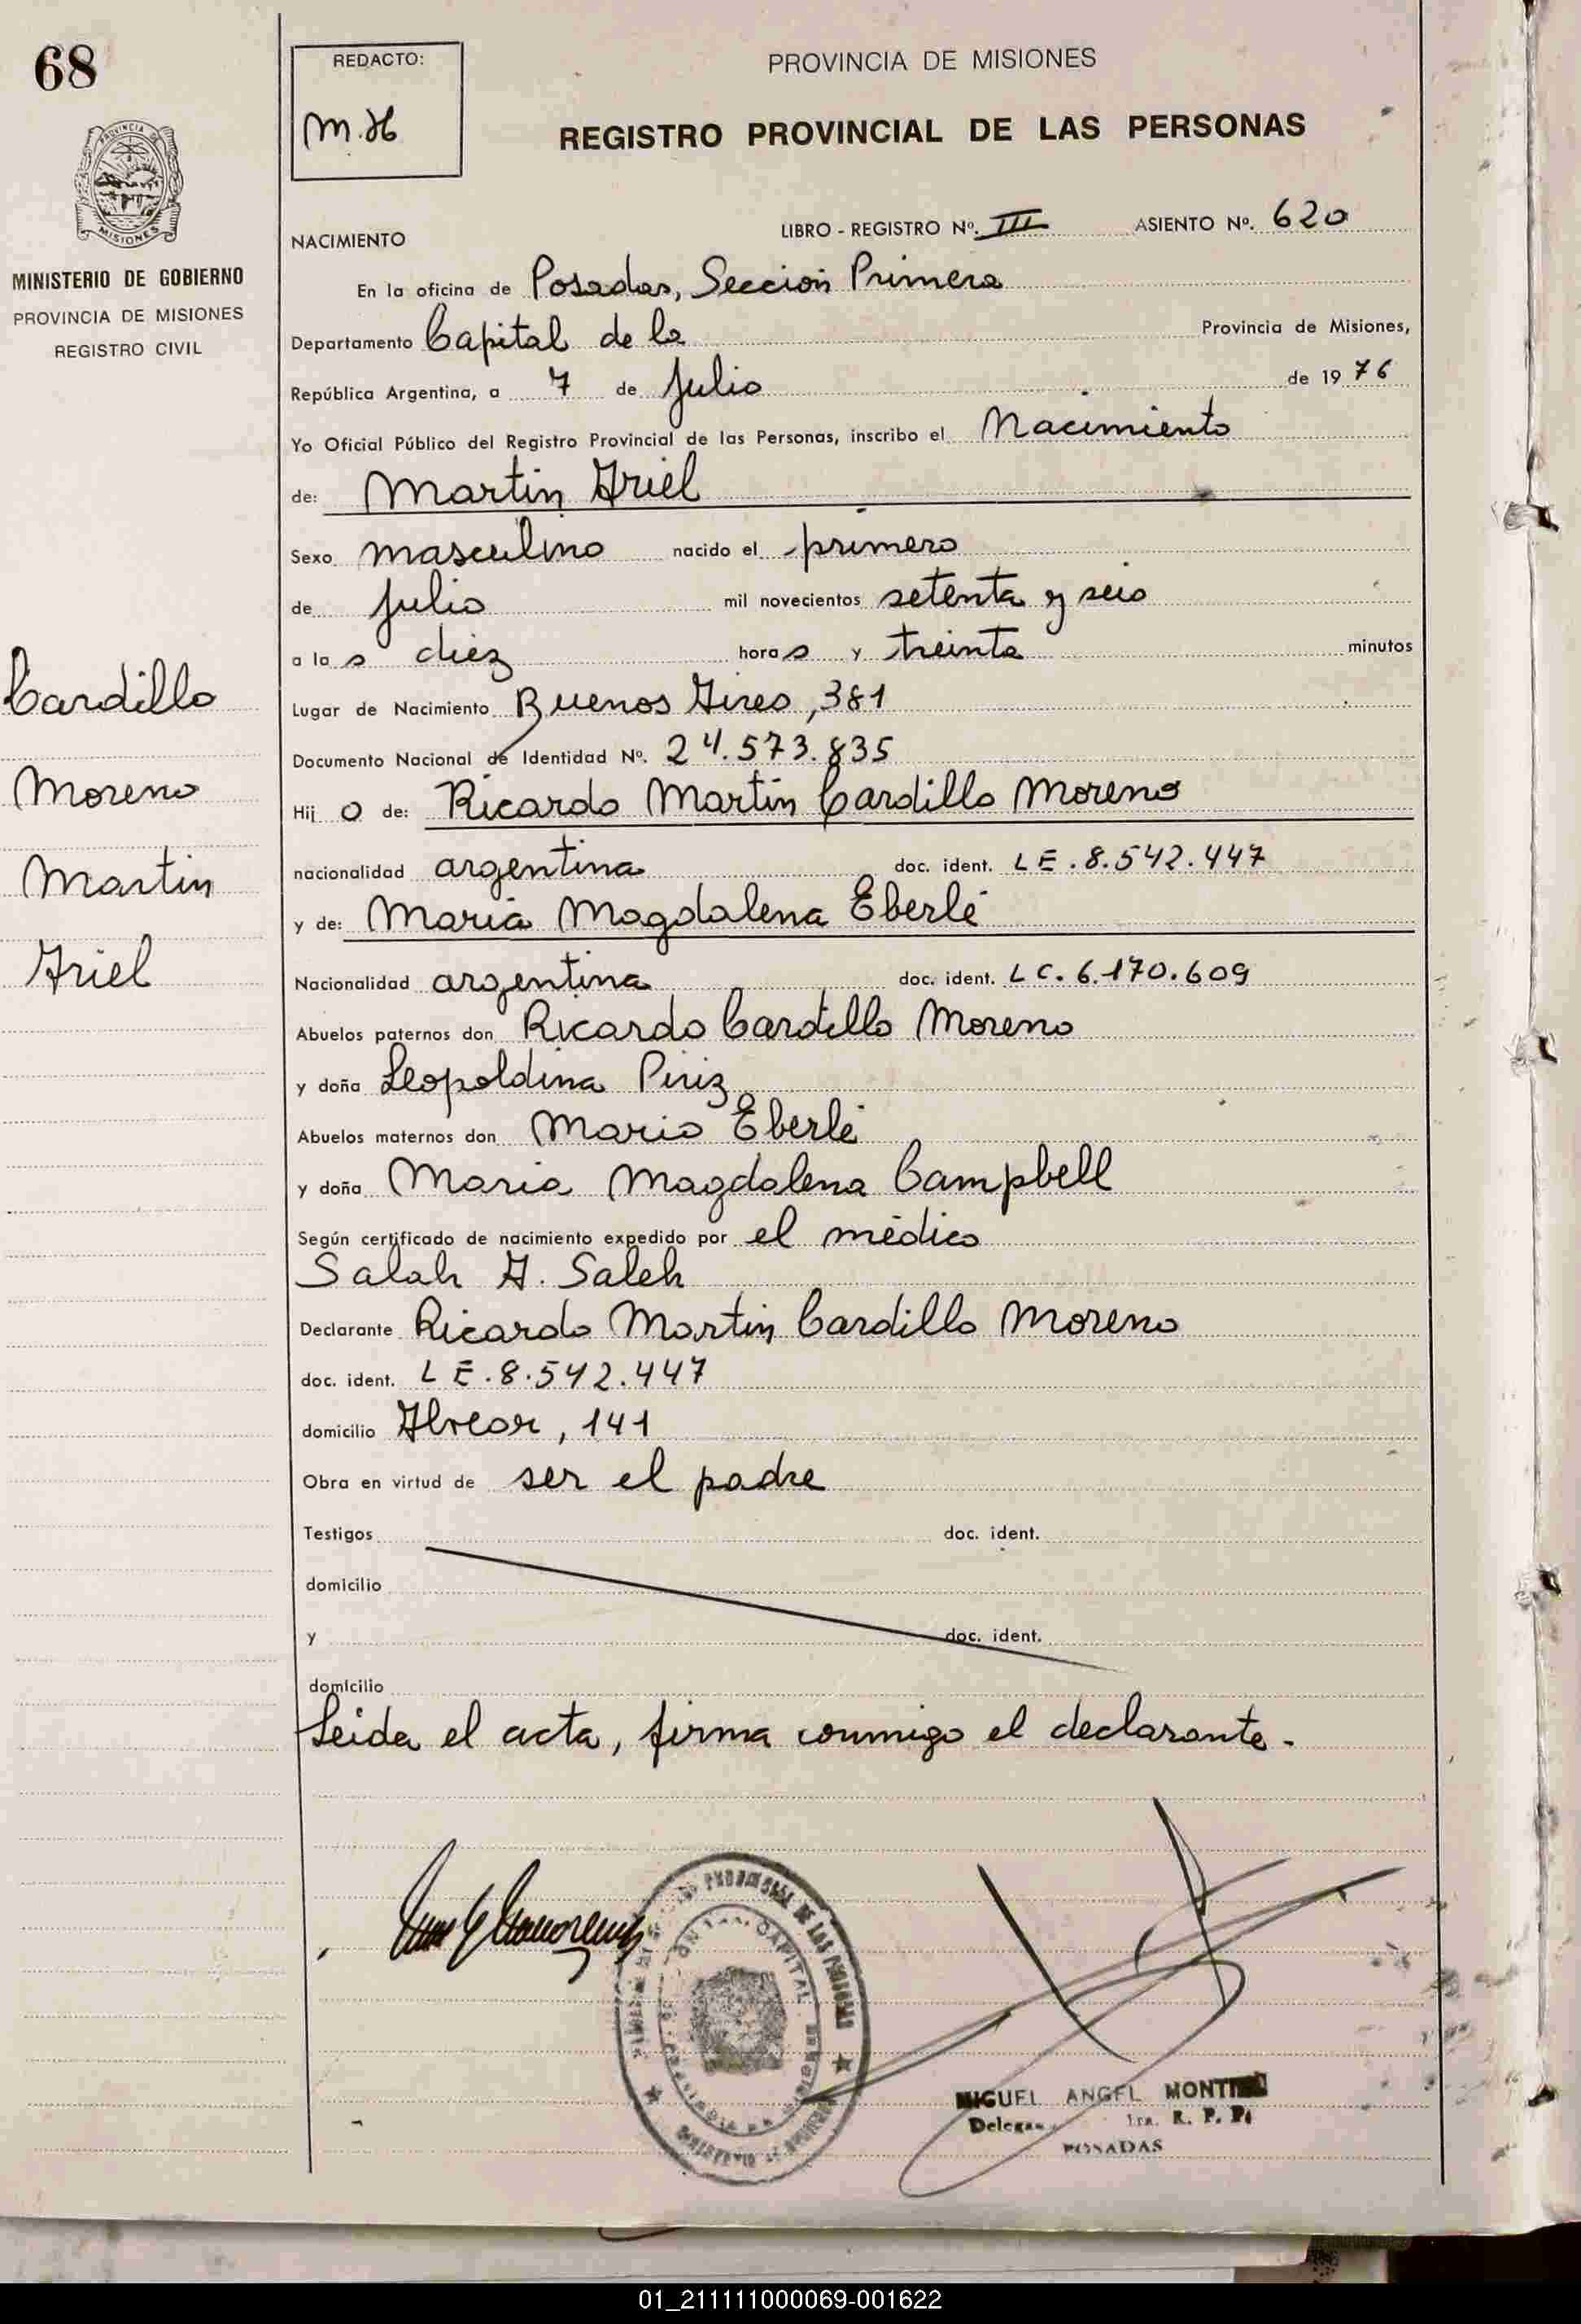 68
REDACTO:
M.H
PROVINCIA DE MISIONES
REGISTRO PROVINCIAL DE LAS PERSONAS
MISIONES
MINISTERIO DE GOBIERNO
PROVINCIA DE MISIONES
REGISTRO CIVIL
NACIMIENTO
LIBRO - REGISTRO Nº. III ASIENTO Nº. 620
En la oficina de Posadas, Sección Primera
Departamento Capital de la Provincia de Misiones,
República Argentina, a 7 de Julio de 19 76
Yo Oficial Público del Registro Provincial de las Personas, inscribo el Nacimiento
de: Martin Ariel
Sexo masculino nacido el primero
de Julio mil novecientos setenta y seis
a la s diez hora s y treinta minutos
Lugar de Nacimiento Buenos Aires, 381
Documento Nacional de Identidad Nº. 24.573.835
Hij o de: Ricardo Martin Cardillo Moreno
nacionalidad argentina doc. ident. LE.8.542.447
y de: Maria Magdalena Eberlé
Nacionalidad argentina doc. ident. LC.6.170.609
Abuelos paternos don Ricardo Cardillo Moreno
y doña Leopoldina Piriz
Abuelos maternos don Mario Eberlé
y doña Maria Magdalena Campbell
Según certificado de nacimiento expedido por el médico
Salah A. Saleh
Declarante Ricardo Martin Cardillo Moreno
doc. ident. LE.8.542.447
domicilio Alvear, 141
Obra en virtud de ser el padre
Testigos doc. ident.
domicilio
y doc. ident.
domicilio
Leida el acta, firma conmigo el declarante.-
Cardillo
Moreno
Martin
Ariel
CAPITAL
MIGUEL ANGEL
R. P. P.
POSADAS
01_211111000069-001622